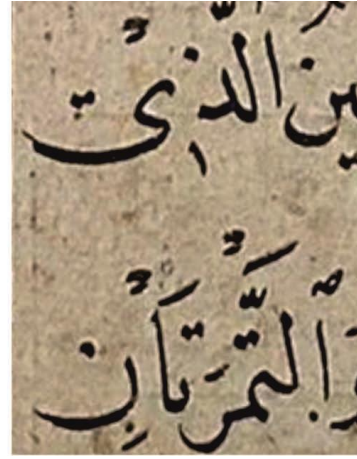 ين الَّذِي
وَالتَّمْرَتَانِ